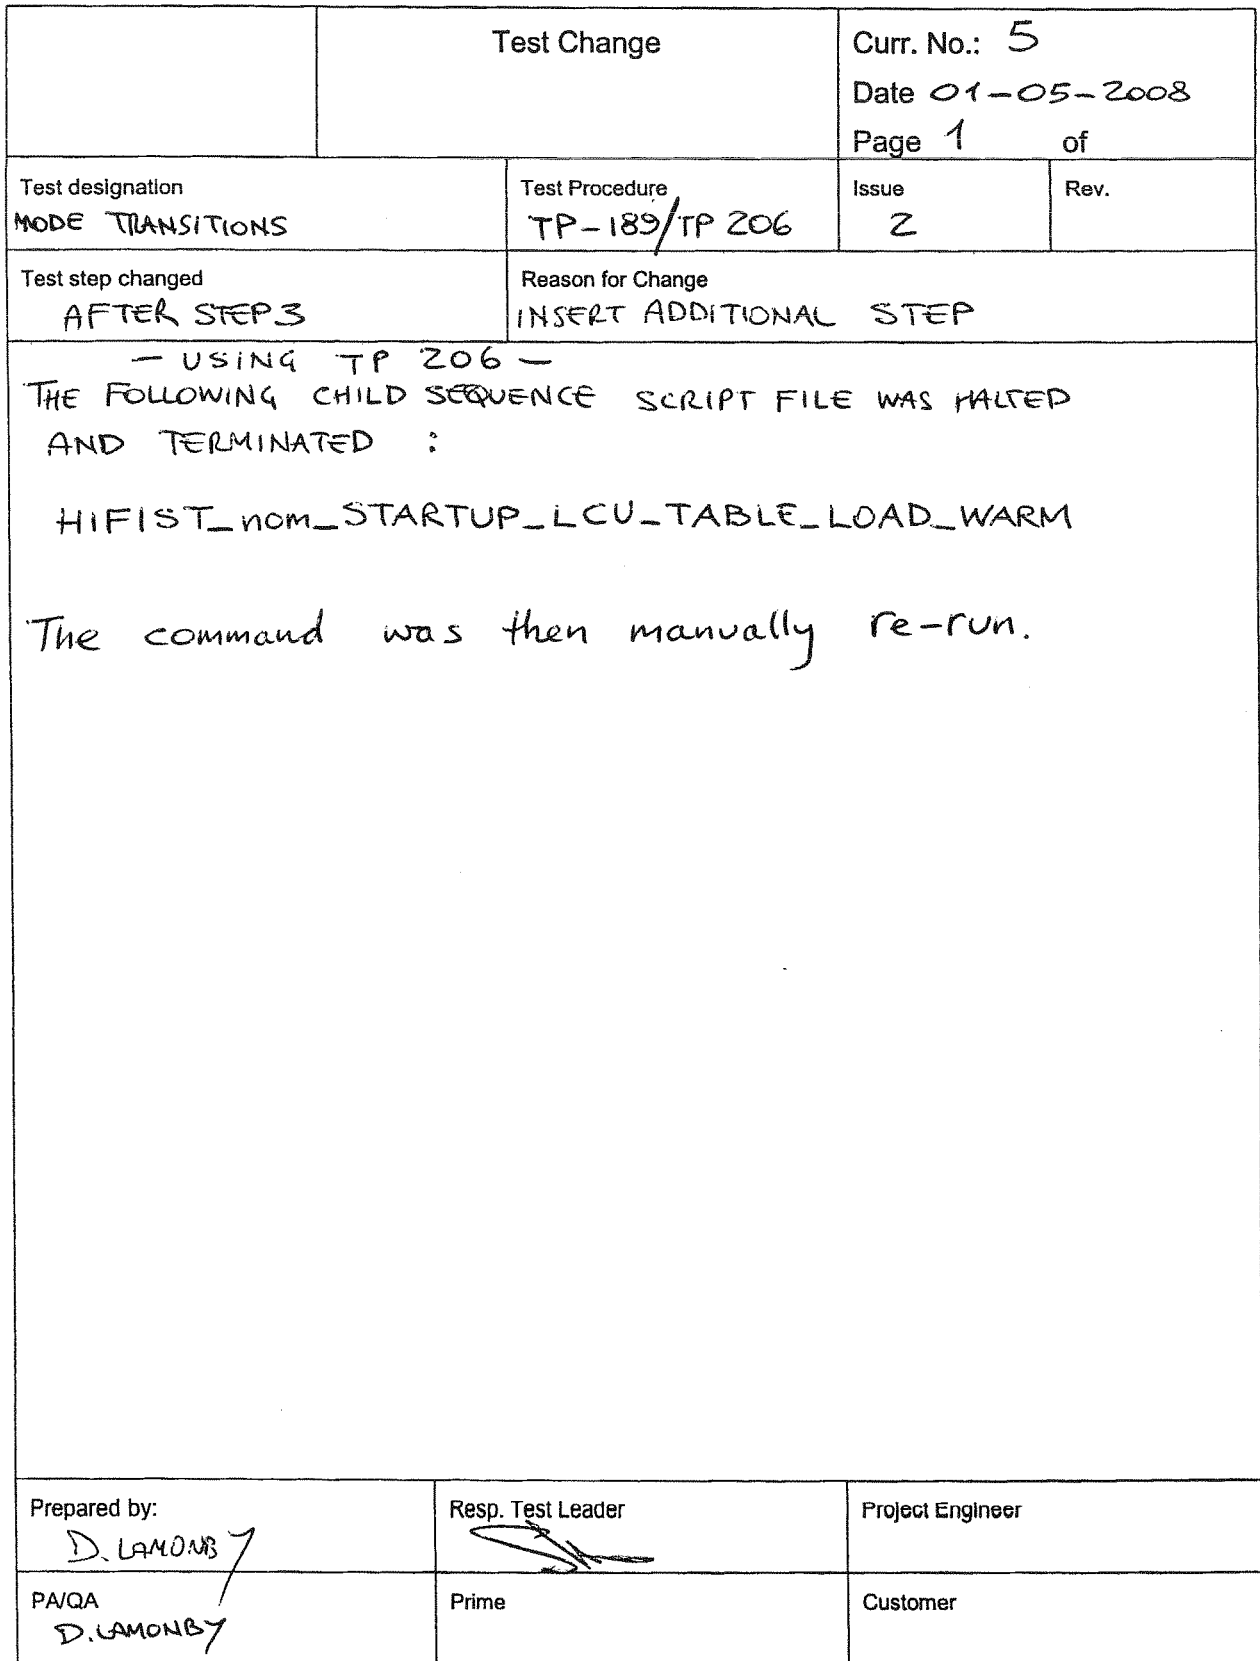 Test Change
Curr. No.: 5
Date 01-05-2008
Page 1 of
Test designation
MODE TRANSITIONS
Test Procedure
TP-189/TP 206
Issue
2
Rev.
Test step changed
AFTER STEP 3
Reason for Change
INSERT ADDITIONAL STEP
- USING TP 206 -
THE FOLLOWING CHILD SEQUENCE SCRIPT FILE WAS HALTED
AND TERMINATED :
HIFIST_nom_STARTUP_LCU_TABLE_LOAD_WARM
The command was then manually re-run.
Prepared by:
D. LAMONBY
Resp. Test Leader
Project Engineer
PA/QA
D. LAMONBY
Prime
Customer